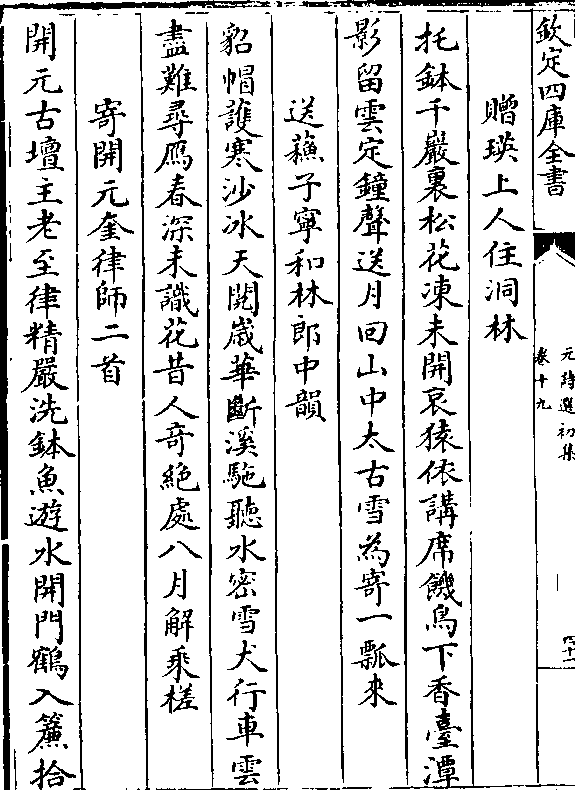 欽定四庫全書
元詩選初集
卷十九
四十二
贈瑛上人住洞林
托鉢千巖裏松花凍未開哀猿依講席饑鳥下香臺潭
影留雲定鐘聲送月回山中太古雪為寄一瓢來
送蘓子寜和林郎中韻
貂帽護寒沙氷天閲嵗華斷溪駞聽水密雪犬行車雲
盡難尋鴈春深未識花昔人竒絶處八月解乘槎
寄開元奎律師二首
開元古壇主老至律精嚴洗鉢魚遊水開門鶴入簾拾